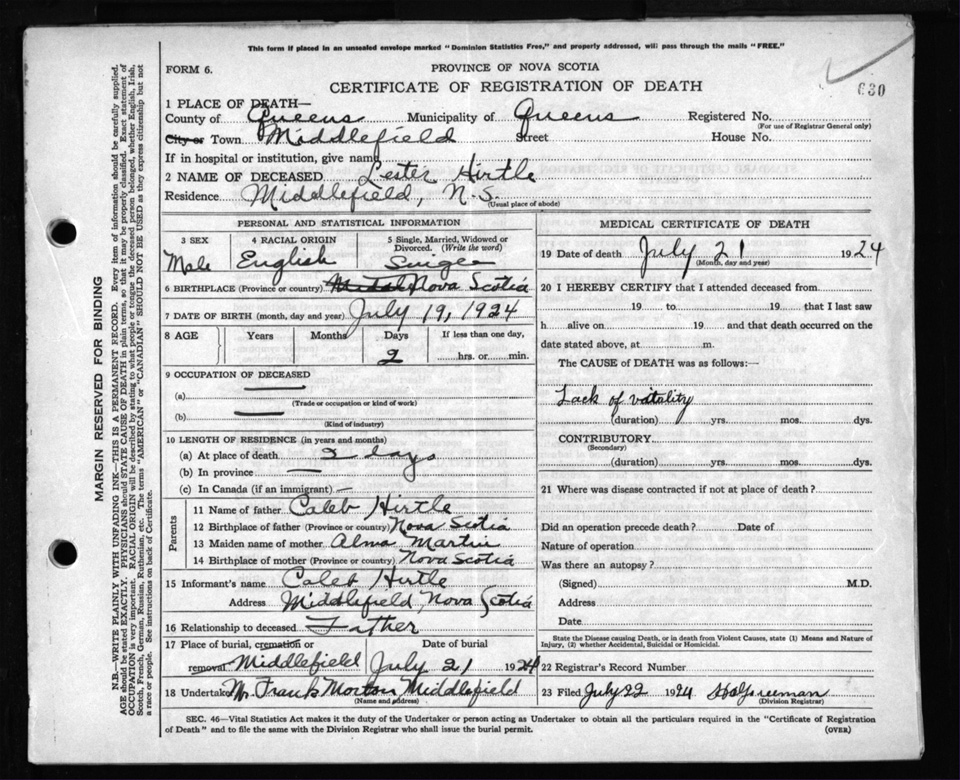 This form if placed in an unsealed envelope marked "Dominion Statistics Free," and properly addressed, will pass through the mails "FREE."
FORM 6.
PROVINCE OF NOVA SCOTIA
CERTIFICATE OF REGISTRATION OF DEATH
630
1 PLACE OF DEATH—
County of Queens Municipality of Queens Registered No.
(For use of Registrar General only)
City or Town Middlefield Street House No.
If in hospital or institution, give name
2 NAME OF DECEASED Lester Hirtle
Residence Middlefield, N.S.
(Usual place of abode)
PERSONAL AND STATISTICAL INFORMATION
3 SEX 4 RACIAL ORIGIN 5 Single, Married, Widowed or Divorced. (Write the word)
Male English Single
6 BIRTHPLACE (Province or country) Nova Scotia
7 DATE OF BIRTH (month, day and year) July 19, 1924
8 AGE Years Months Days If less than one day,
2 hrs. or min.
9 OCCUPATION OF DECEASED
(a)
(Trade or occupation or kind of work)
(b)
(Kind of industry)
10 LENGTH OF RESIDENCE (in years and months)
(a) At place of death 2 days
(b) In province —
(c) In Canada (if an immigrant) —
Parents
11 Name of father Caleb Hirtle
12 Birthplace of father (Province or country) Nova Scotia
13 Maiden name of mother Alma Martin
14 Birthplace of mother (Province or country) Nova Scotia
15 Informant's name Caleb Hirtle
Address Middlefield, Nova Scotia
16 Relationship to deceased Father
17 Place of burial, cremation or Date of burial
removal Middlefield July 21 1924
18 Undertaker Mr. Frank Morton Middlefield
(Name and address)
MEDICAL CERTIFICATE OF DEATH
19 Date of death July 21 1924
(Month, day and year)
20 I HEREBY CERTIFY that I attended deceased from
19 to 19 that I last saw
h alive on 19 and that death occurred on the
date stated above, at m.
The CAUSE of DEATH was as follows:—
Lack of vitality
(duration) yrs. mos. dys.
CONTRIBUTORY
(Secondary)
(duration) yrs. mos. dys.
21 Where was disease contracted if not at place of death?
Did an operation precede death? Date of
Nature of operation
Was there an autopsy?
(Signed) M.D.
Address
Date
State the Disease causing Death, or in death from Violent Causes, state (1) Means and Nature of Injury, (2) whether Accidental, Suicidal or Homicidal.
22 Registrar's Record Number
23 Filed July 22 1924
(Division Registrar)
SEC. 46—Vital Statistics Act makes it the duty of the Undertaker or person acting as Undertaker to obtain all the particulars required in the "Certificate of Registration
of Death" and to file the same with the Division Registrar who shall issue the burial permit.
(OVER)
MARGIN RESERVED FOR BINDING
N.B.—WRITE PLAINLY WITH UNFADING INK—THIS IS A PERMANENT RECORD. Every item of information should be carefully supplied.
AGE should be stated EXACTLY. PHYSICIANS should STATE CAUSE OF DEATH in plain terms, so that it may be properly classified. Exact statement of
OCCUPATION is very important. RACIAL ORIGIN will be described by stating to what people or tongue the deceased person belonged, whether English, Irish,
Scotch, French, German, Russian, Ruthenian, etc. The terms "AMERICAN" or "CANADIAN" SHOULD NOT BE USED as they express citizenship but not
a race or people. See instructions on back of Certificate.